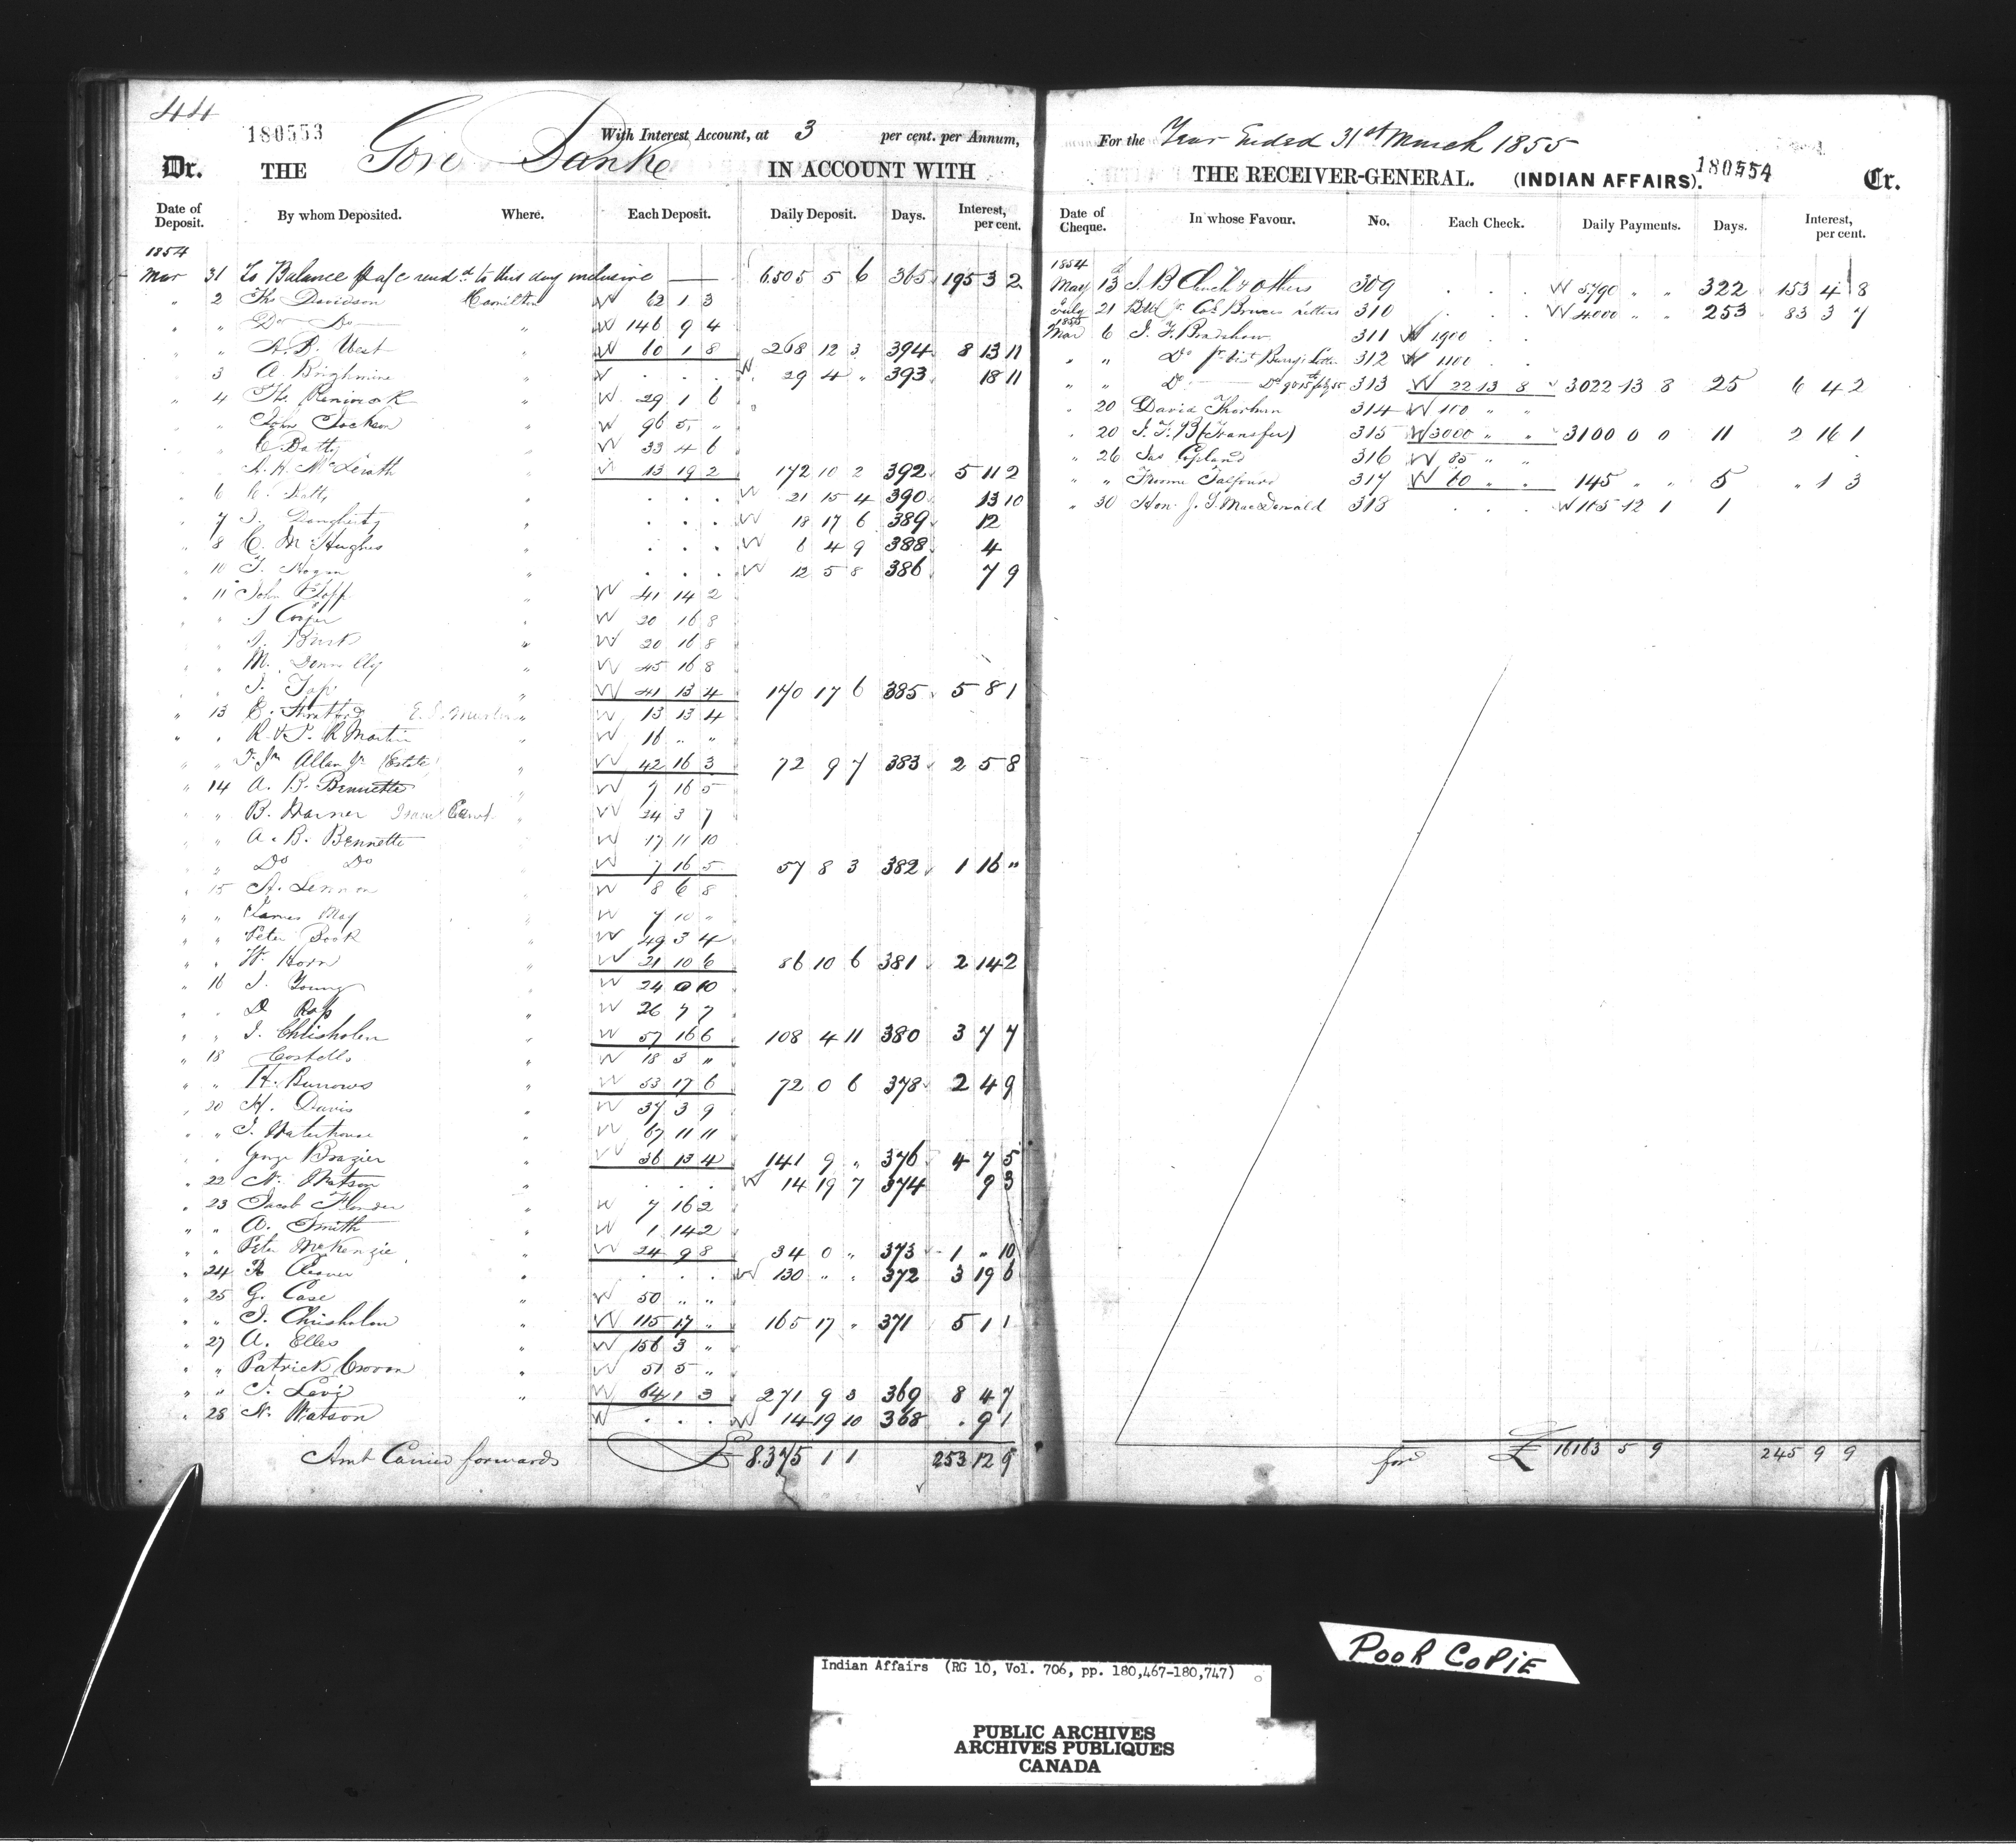 44
180553
With Interest Account, at 3 per cent. per Annum,
Dr. THE Gore Banke IN ACCOUNT WITH
Date of Deposit. By whom Deposited. Where. Each Deposit. Daily Deposit. Days. Interest, per cent.
1854
Mar 31 To Balance p a/c rend.d to this day inclusive 6505 5 6 365 195 3 2
" 2 Th. Davidson Hamilton W 62 1 3
" " Do Do W 146 9 4
" " A. B. West " W 60 1 8 268 12 3 394 8 13 11
3 A. Brighmine " W . . . W 29 4 " 393 18 11
" 4 Th. " W 29 1 6
" John Jackson " W 96 5 "
C Batty W 33 4 6
A. H. McLerath " W 13 19 2 172 10 2 392 5 11 2
" 6 " . . . W 21 15 4 390 13 10
" 7 J. Daugherty " . . . W 18 17 6 389 12
" 8 C. McHughes . . . W 6 4 9 388 4
" 10 T. Hogan " . . . W 12 5 8 386 7 9
" 11 John " W 41 14 2
" J Cooper " W 20 16 8
" " W 20 16 8
" " M. Donnelly " W 45 16 8
" " J. " W 41 13 4 170 17 6 385 5 8 1
" 13 E. Stratford " W 13 13 4
" " R. & P. R Martin " W 16 " "
" " Allan Jr (Estate) " W 42 16 3 72 9 7 383 2 5 8
" 14 A. B. Bennette " W 7 16 5
" " B. Warner " W 24 3 7
" A. B. Bennette W 17 11 10
" Do Do W 7 16 5 57 8 3 382 1 16 "
" 15 A. Lennon W 8 6 8
" " James May W 7 10 "
" " Peter " W 49 3 4
" " W. Horn " W 21 10 6 86 10 6 381 2 14 2
" 16 J. Young " W 24 0 10
" " D " W 26 7 7
" " J. Chrisholm " W 57 16 6 108 4 11 380 3 7 7
" 18 Costello " W 18 3 "
" " H. Burrows " W 53 17 6 72 0 6 378 2 4 9
" 20 H. Davis " W 37 3 9
" " J. Waterhouse " W 67 11 11
" " George Brazier " W 36 13 4 141 9 " 376 4 7 5
" 22 N. Watson " . . . W 14 19 7 374 9 3
" 23 Jacob " W 7 16 2
" " A. Smith " W 1 14 2
" " Peter McKenzie " W 24 9 8 34 0 " 373 1 " 10
" 24 R Cleaver " . . . W 130 " " 372 3 19 6
" 25 G. Case " W 50 " "
" " J. Chrisholm " W 115 17 " 165 17 " 371 5 1 1
" 27 A. Elles W 156 3 "
" " Patrick " W 51 5 "
" " J. Levi " W 64 1 3 271 9 3 369 8 4 7
" 28 N. Watson W . . . W 14 19 10 368 . 9 1
Amt Carried forwards £ 8375 1 1 253 12 9
For the Year Ended 31st March 1855
THE RECEIVER-GENERAL. (INDIAN AFFAIRS). 180554 Cr.
Date of Cheque. In whose Favour. No. Each Check. Daily Payments. Days. Interest, per cent.
1854
May 13 J. B Clench & others 309 . . . W 5790 " " 322 153 4 8
July 21 Col. Bruces letters 310 . . . W 4000 " " 253 83 3 7
1855
Mar 6 J. F. Bradshaw 311 W 1900 . .
" " Do 312 W 1100 . .
" " Do 313 W 22 13 8 3022 13 8 25 6 4 2
" 20 David Thorburn 314 W 100 " "
" 20 J. F. B (Transfer) 315 W 3000 " " 3100 0 0 11 2 16 1
" 26 Jas Copland 316 W 85 " "
" " Froome Talfourd 317 W 60 " " 145 " " 5 " 1 3
" 30 Hon. J. S. MacDonald 318 . . . W 105 12 1 1
for.d £ 16163 5 9 245 9 9
POOR COPIE
Indian Affairs (RG 10, Vol. 706, pp. 180,467-180,747)
PUBLIC ARCHIVES
ARCHIVES PUBLIQUES
CANADA